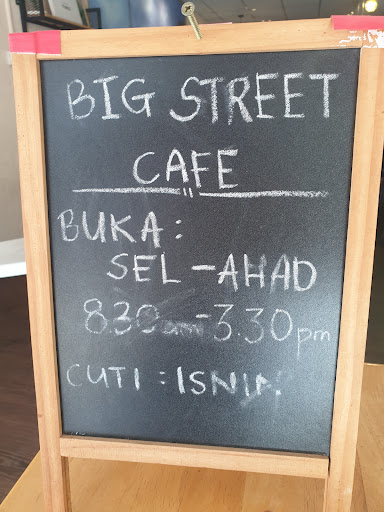 BIG STREET
CAFE
BUKA :
SEL - AHAD
8.30am - 3.30pm
CUTI : ISNIN